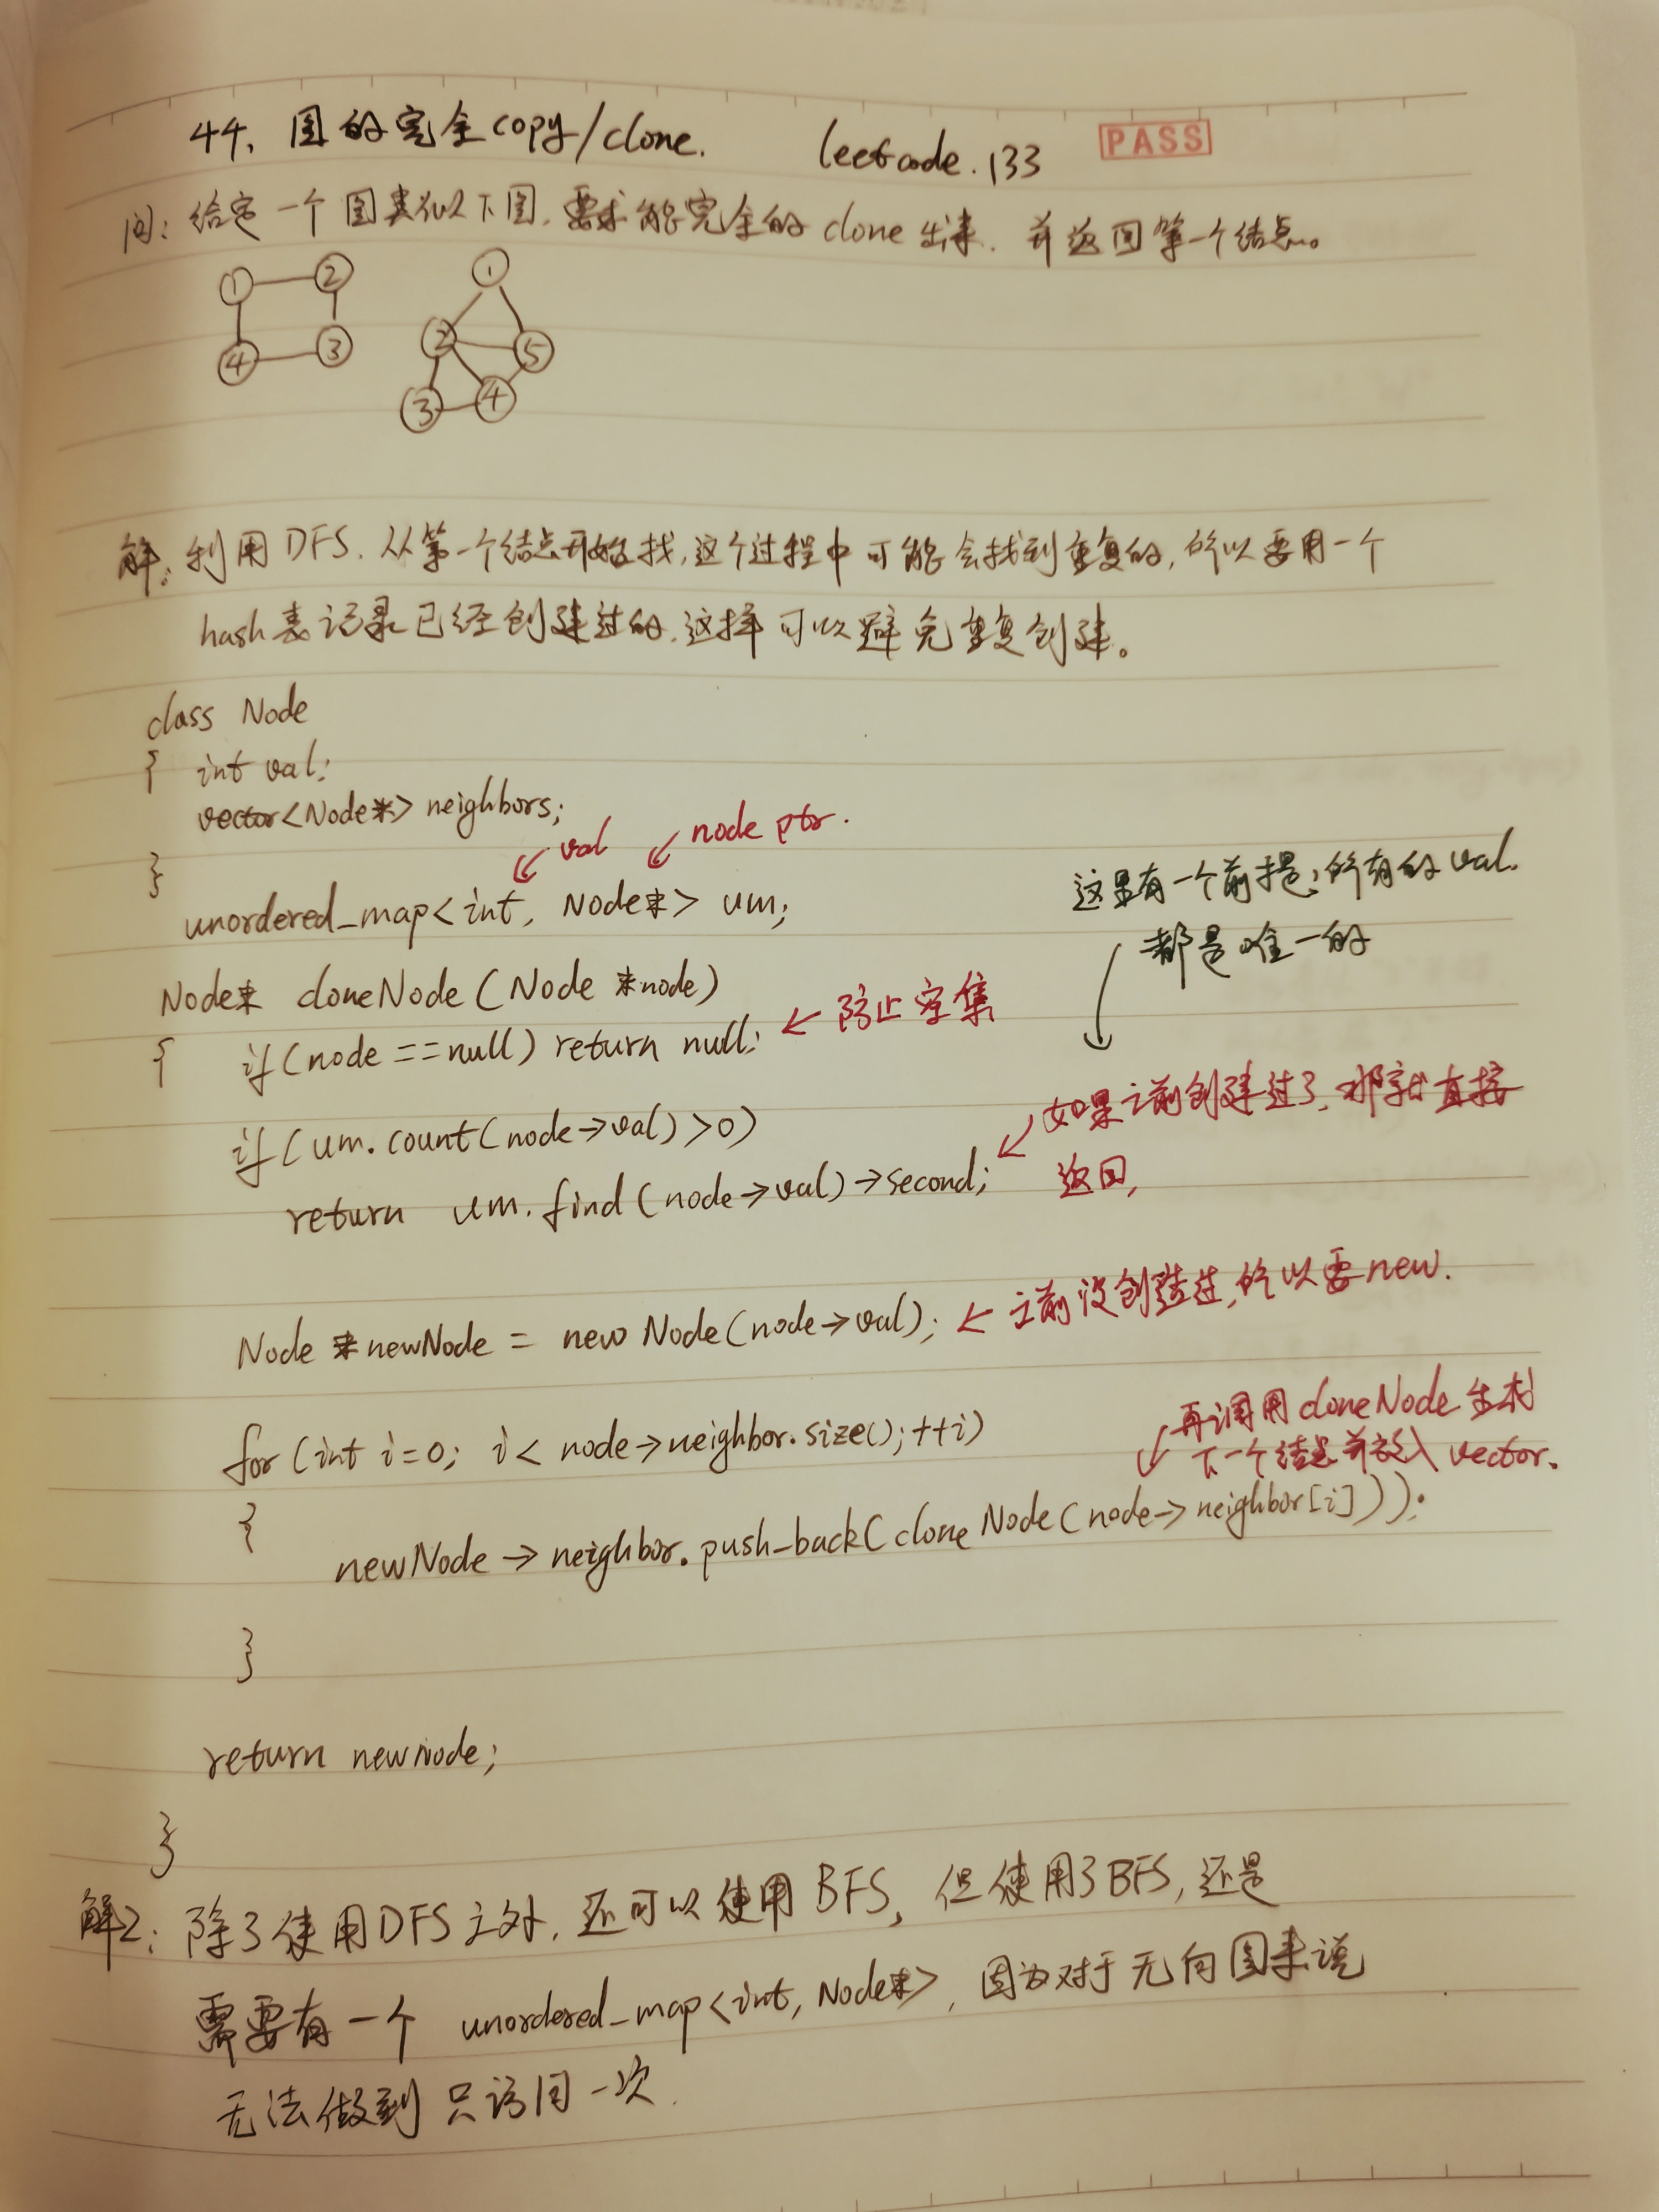 44、图的完全copy/clone. leetcode.133 PASS
问: 给定一个图类似以下图, 要求能完全的clone出来, 并返回第一个结点。
① ② ①
② ⑤
④ ③
③ ④
解: 利用DFS. 从第一个结点开始找, 这个过程中可能会找到重复的, 所以要用一个
hash表记录已经创建过的, 这样可以避免重复创建。
class Node
{ int val;
vector<Node*> neighbors;
}
val node ptr.
unordered_map<int, Node*> um;
这里有一个前提: 所有的val.
都是唯一的
Node* cloneNode(Node *node)
{ if(node==null) return null; ← 防止空集
if(um.count(node→val)>0)
return um.find(node→val)→second;
如果之前创建过了, 那就直接
返回,
Node *newNode = new Node(node→val); ← 之前没创造过, 所以要new.
for(int i=0; i< node→neighbor.size(); ++i)
再调用cloneNode生成
下一个结点并放入vector.
{
newNode→neighbor.push_back(cloneNode(node→neighbor[i]));
}
return newNode;
}
解2: 除了使用DFS之外, 还可以使用BFS, 但使用了BFS, 还是
需要有一个 unordered_map<int, Node*>, 因为对于无向图来说
无法做到只访问一次.